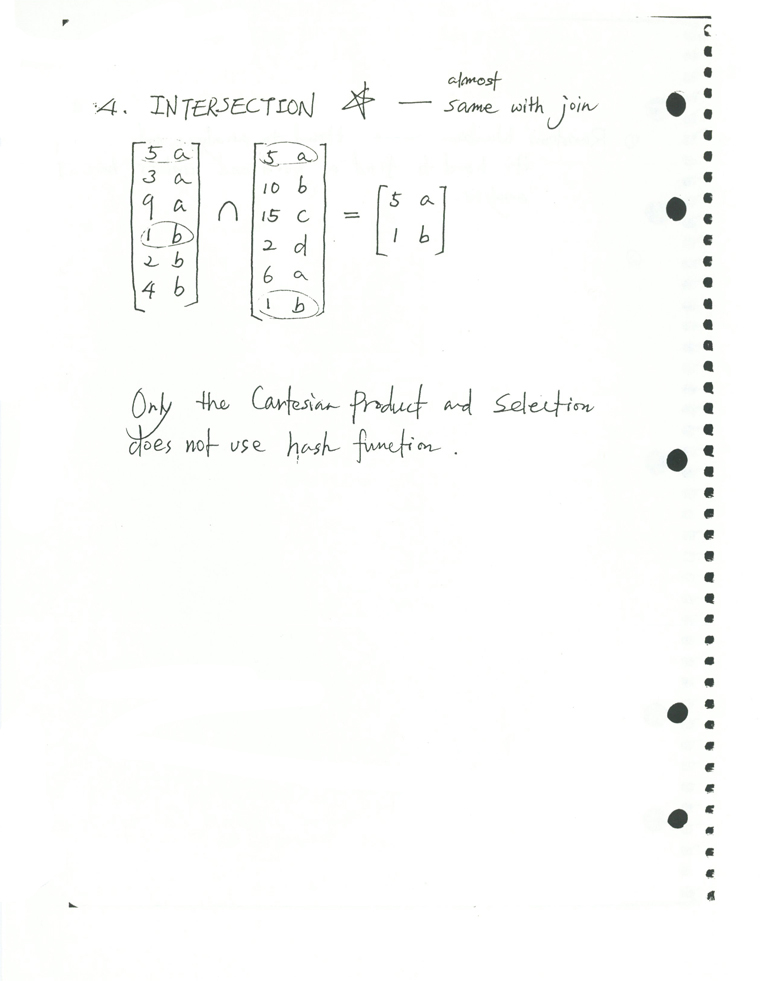 4. INTERSECTION ☆ — almost same with join
5 a
3 a
9 a
1 b
2 b
4 b
∩
5 a
10 b
15 c
2 d
6 a
1 b
=
5 a
1 b
Only the Cartesian Product and Selection
does not use hash function.